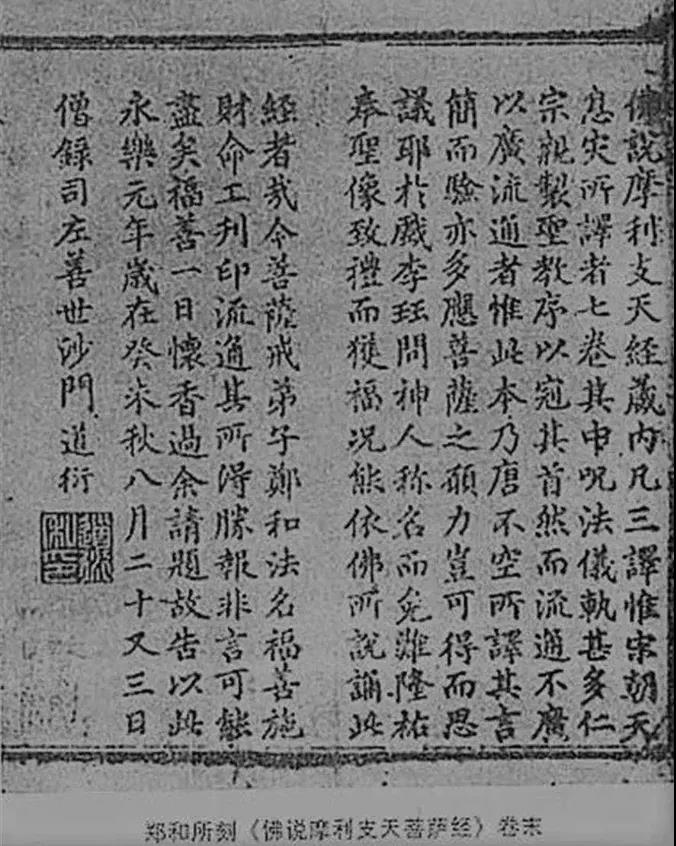 佛說摩利支天經藏內凡三譯惟宋朝天
息災所譯者七卷其中呪法儀軌甚多仁
宗親製聖教序以冠其首然而流通不廣
以廣流通者惟此本乃唐不空所譯其言
簡而驗亦多應菩薩之願力豈可得而思
議耶於戲李珏問神人称名而免難隆祐
奉聖像致禮而獲福况能依佛所說誦此
經者哉今菩薩戒弟子鄭和法名福善施
財命工刊印流通其所得勝報非言可能
盡矣福善一日懷香過余請題故告以此
永樂元年歲在癸未秋八月二十又三日
僧録司左善世沙門道衍
郑和所刻《佛说摩利支天菩萨经》卷末